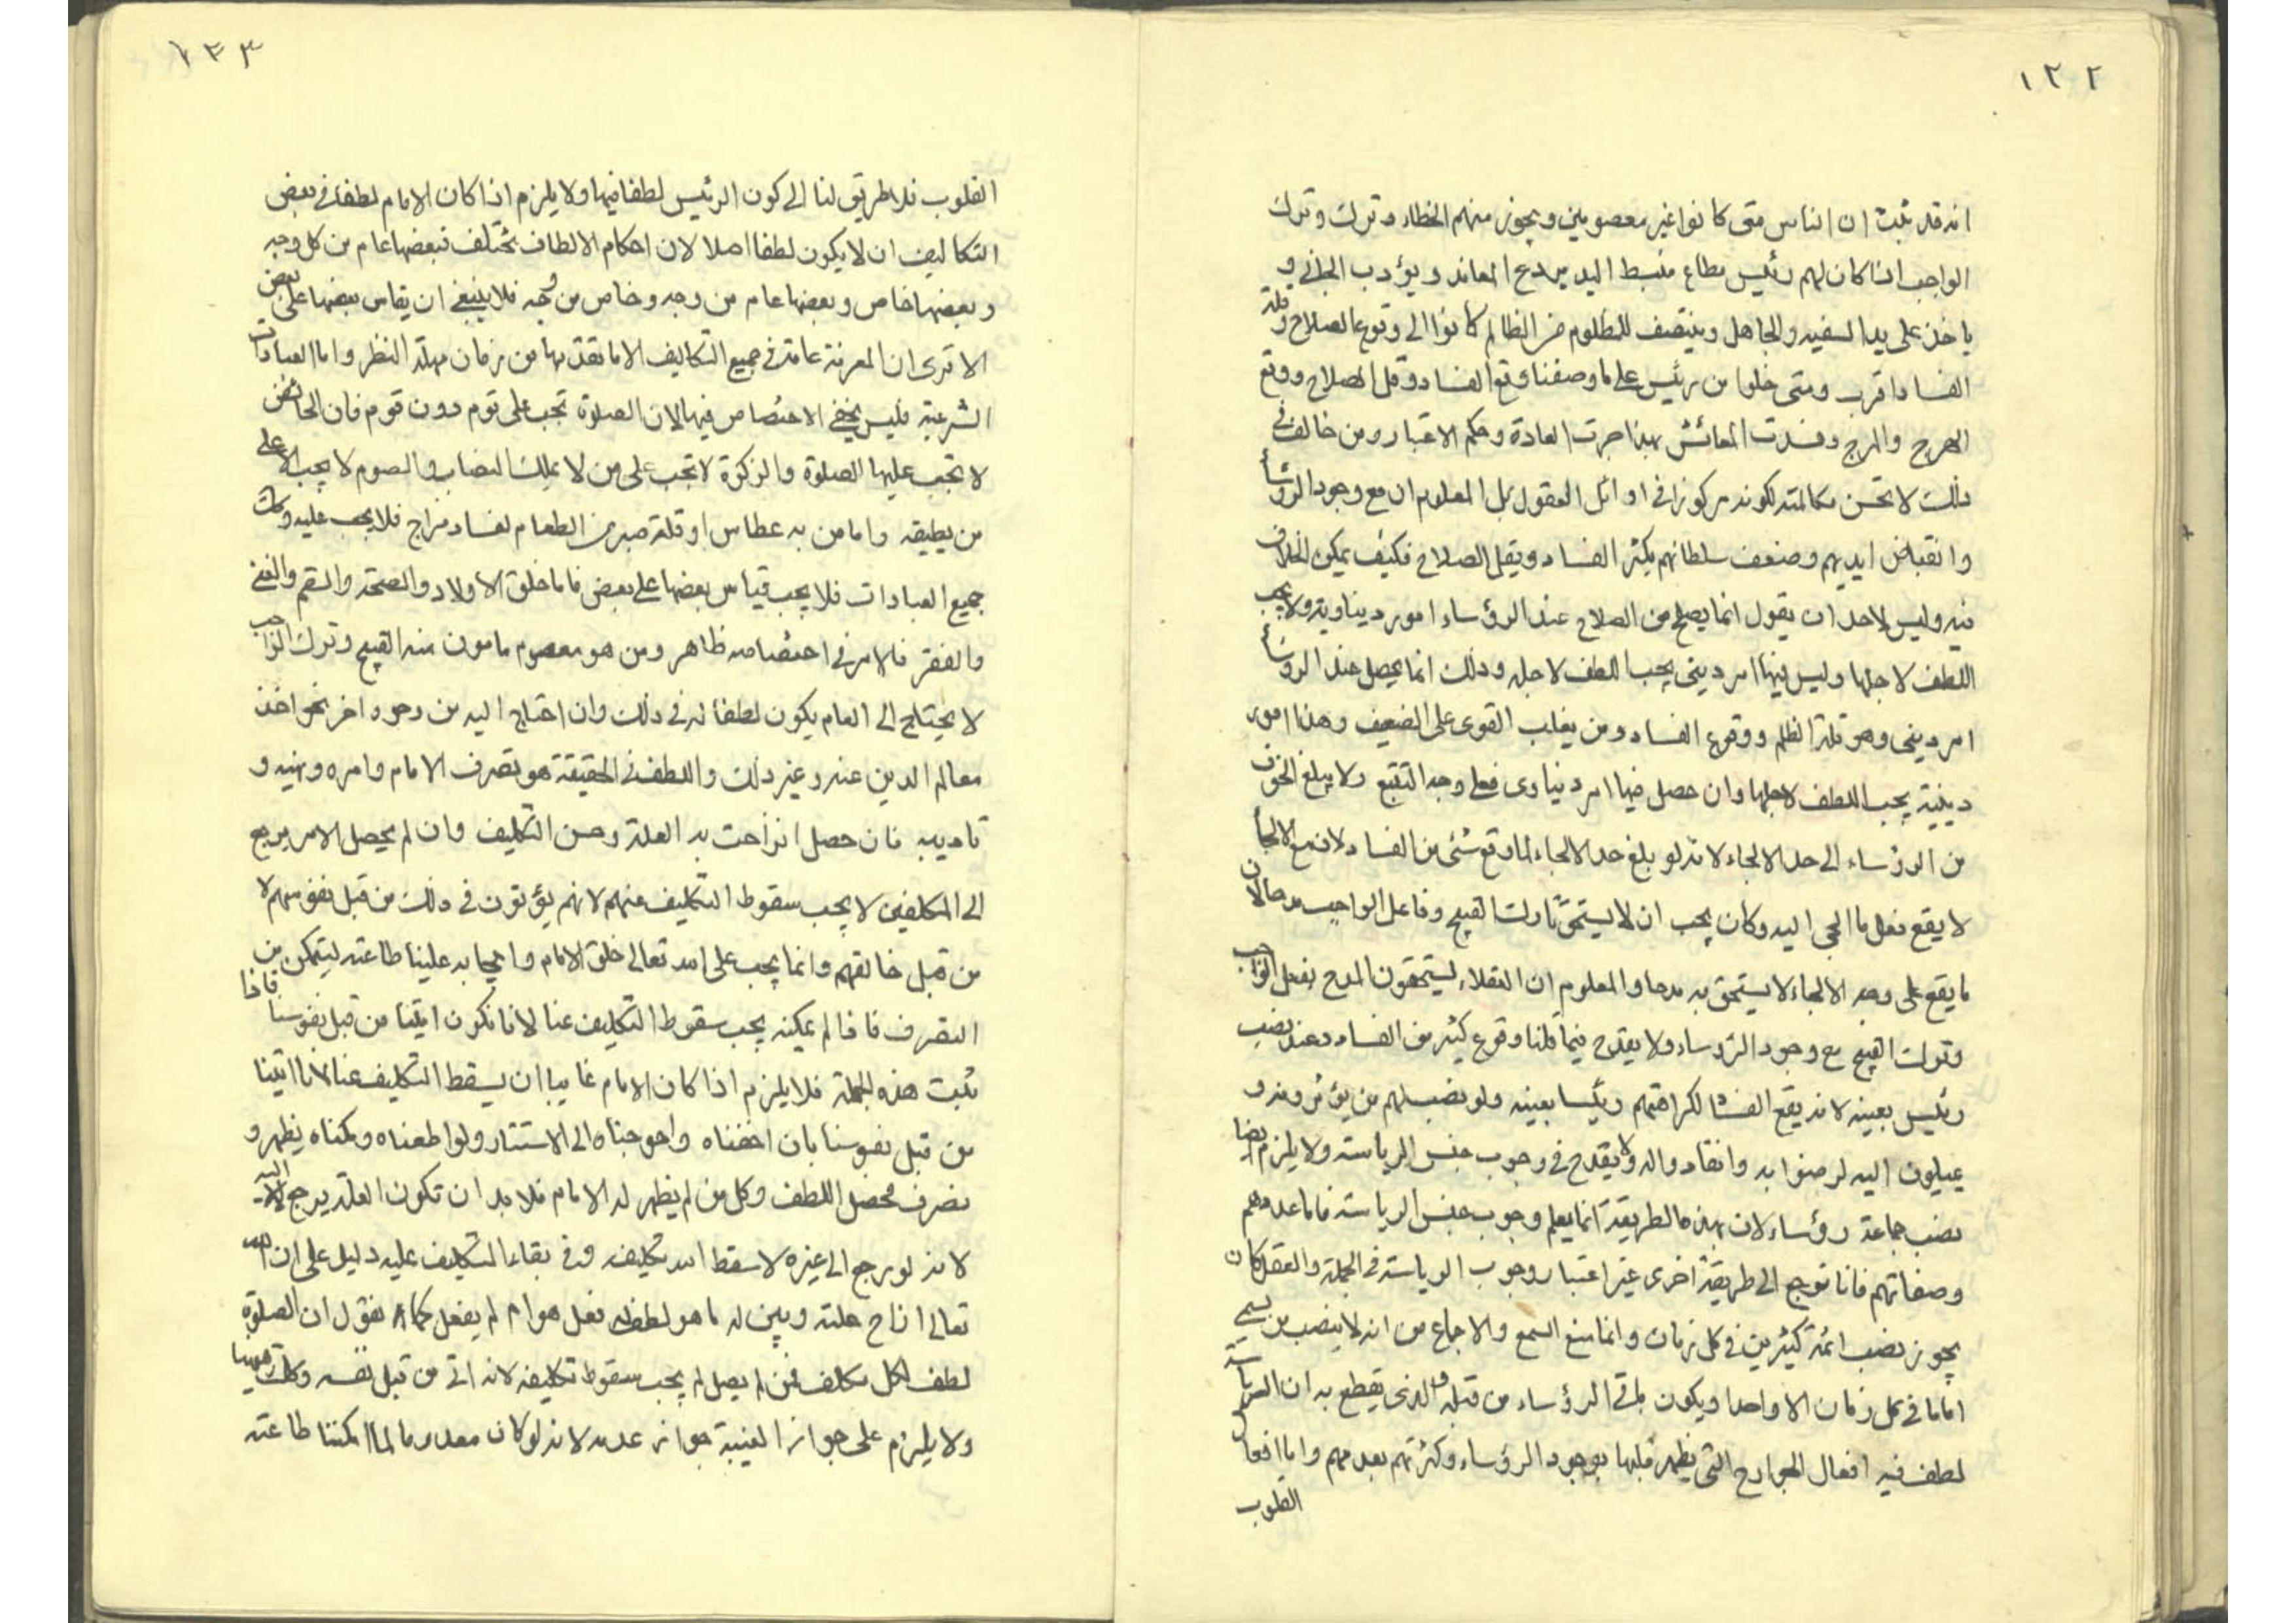 ١٢٢
انه قد ثبت ان الناس متى كانوا غير معصومين ويجوز منهم الخطاء وترك وترك
الواجب اذا كان لهم رئيس مطاع منبسط اليد يردع المعاند ويؤدب الجاني و
ياخذ على يد السفيه والجاهل وينتصف للمظلوم من الظالم كانوا الى وقوع الصلاح وقلة
الفساد اقرب ومتى خلوا من رئيس على ما وصفنا وقع الفساد وقل الصلاح ووقع
الهرج والمرج وفسدت المعائش بهذا جرت العادة وحكم الاعتبار ومن خالف في
ذلك لا تحسن مكالمته لكونه مركوزا في اوائل العقول بل المعلوم ان مع وجود الرؤساء
وانقباض ايديهم وضعف سلطانهم يكثر الفساد ويقل الصلاح فكيف يمكن الخلاف
فيه وليس لاحد ان يقول انما يصلح من الصلاح عند الرؤساء امور ديناوية ولا يجب
اللطف لاجلها وليس فيها امر ديني يجب اللطف لاجله وذلك انما يحصل عند الرؤساء
امر ديني وهو قلة الظلم ووقوع الفساد ومن يغلب القوى على الضعيف وهذا امور
دينية يجب اللطف لاجلها وان حصل فيها امر ديناوى فعلى وجه التتبع ولا يبلغ الخوف
من الرؤساء الى حد الالجاء لانه لو بلغ حد الالجاء لما وقع شئ من الفساد لان مع الالجاء
لا يقع فعل ما الجى اليه وكان يجب ان لا يستحق تارك القبيح وفاعل الواجب مدحا لان
ما يقع على وجه الالجاء لا يستحق به مدحا والمعلوم ان العقلاء يستحقون المدح بفعل الواجب
وترك القبيح مع وجود الرؤساء ولا يقدح فيما قلنا وقوع كثير من الفساد عند نصب
رئيس بعينه لانه يقع الفساد لكراهتهم رئيسا بعينه ولو نصب لهم من يؤثرونه و
يميلون اليه لرضوا به وانقادوا له ولا يقدح في وجوب جنس الرياسة ولا يلزم ايضا
نصب جماعة رؤساء لان بهذه الطريقة انما يعلم وجوب جنس الرياسة فاما عددهم
وصفاتهم فانا نرجع الى طريقة اخرى غير اعتبار وجوب الرياسة في الجملة والعقل كان
يجوز نصب ائمة كثيرين في كل زمان وانما منع السمع والاجماع من انه لا ينصب من يسمى
اماما في كل زمان الا واحدا ويكون باقى الرؤساء من قبله والذى يقطع به ان الرياسة
لطف فيه افعال الجوارح التى يظهر قلبها بوجود الرؤساء وكثرتهم بعدمهم واما افعال
القلوب
١٢٣
القلوب فلا طريق لنا الى كون الرئيس لطفا فيها ولا يلزم اذا كان الامام لطفا في بعض
التكاليف ان لا يكون لطفا اصلا لان احكام الالطاف تختلف فبعضها عام من كل وجه
وبعضها خاص وبعضها عام من وجه وخاص من وجه فلا ينبغي ان يقاس بعضها على بعض
الا ترى ان المعرفة عامة في جميع التكاليف الا ما تقدمها من زمان مهلة النظر واما العبادات
الشرعية فليس يخفى الاختصاص فيها لان الصلوة تجب على قوم دون قوم فان الحائض
لا تجب عليها الصلوة والزكوة لا تجب على من لا يملك النصاب والصوم لا يجب الا على
من يطيقه واما من به عطاس او قلة صبر من الطعام لفساد مزاج فلا يجب عليه وكك
جميع العبادات فلا يجب قياس بعضها على بعض فاما خلق الاولاد والصحة والسقم والغنى
والفقر فالامر في اختصاصه ظاهر ومن هو معصوم مامون منه القبيح وترك الواجب
لا يحتاج الى امام يكون لطفا له في ذلك وان احتاج اليه من وجوه اخر نحو اخذ
معالم الدين عنه وغير ذلك واللطف في الحقيقة هو تصرف الامام وامره ونهيه و
تاديبه فان حصل انزاحت به العلة وحسن التكليف وان لم يحصل الامر يرجع
الى المكلفين لا يجب سقوط التكليف عنهم لانهم يؤتون في ذلك من قبل نفوسهم لا
من قبل خالقهم وانما يجب على الله تعالى خلق الامام وايجابه علينا طاعته ليتمكن من
التصرف فاذا لم يمكنه يجب سقوط التكليف عنا لانا نكون اتينا من قبل نفوسنا فاذا
ثبت هذه الجملة فلا يلزم اذا كان الامام غايبا ان يسقط التكليف عنا لانا اتينا
من قبل نفوسنا بان اخفناه واحوجناه الى الاستتار ولو اطعناه ومكناه يظهر و
تصرف فحصل اللطف وكل من لم يظهر له الامام فلا بد ان تكون العلة يرجع اليه
لانه لو يرجع الى غيره لاسقط الله تكليفه وفى بقاء التكليف عليه دليل على ان الله
تعالى ازاح علته وبين له ما هو لطف له فعل هو ام لم يفعل كما نقول ان الصلوة
لطف لكل مكلف فمن لم يصل لم يجب سقوط تكليفه لانه اتى من قبل نفسه وكك هيهنا
ولا يلزم على جواز الغيبة جواز عدمه لانه لو كان معدوما لما امكننا طاعته